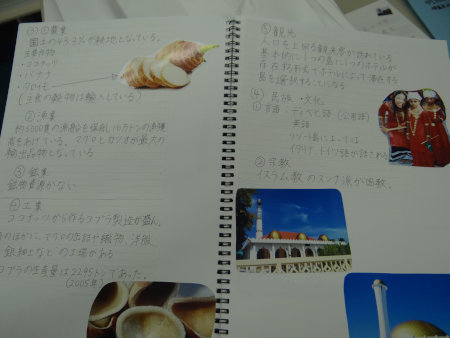 (3) ① 農業
国土の43.3%が耕地となっている。
主要作物
・ココナッツ
・バナナ
・タロイモ
(主食の穀物は輸入している)
② 漁業
約5000隻の漁船を保有し16万トンの漁獲
高をあげている。マグロとカツオが最大の
輸出品物となっている
③ 鉱業
鉱物資源がない
④ 工業
ココナッツから作るコプラ製造が盛ん。
のほかに、マグロの缶詰や織物、洋服
銀細工など の工場がある
コプラの生産量は2295トンであった。
(2005年)
⑤ 観光
人口を上回る観光客が訪れている
基本的に1つの島に1つのホテルが
存在するためホテルによって滞在する
島を選択することになる
④ 民族・文化
① 言語・ディベヒ語 (公用語)
英語
リゾート島によっては
イタリア、ドイツ語が話される
② 宗教
イスラム教のスンナ派が国教。